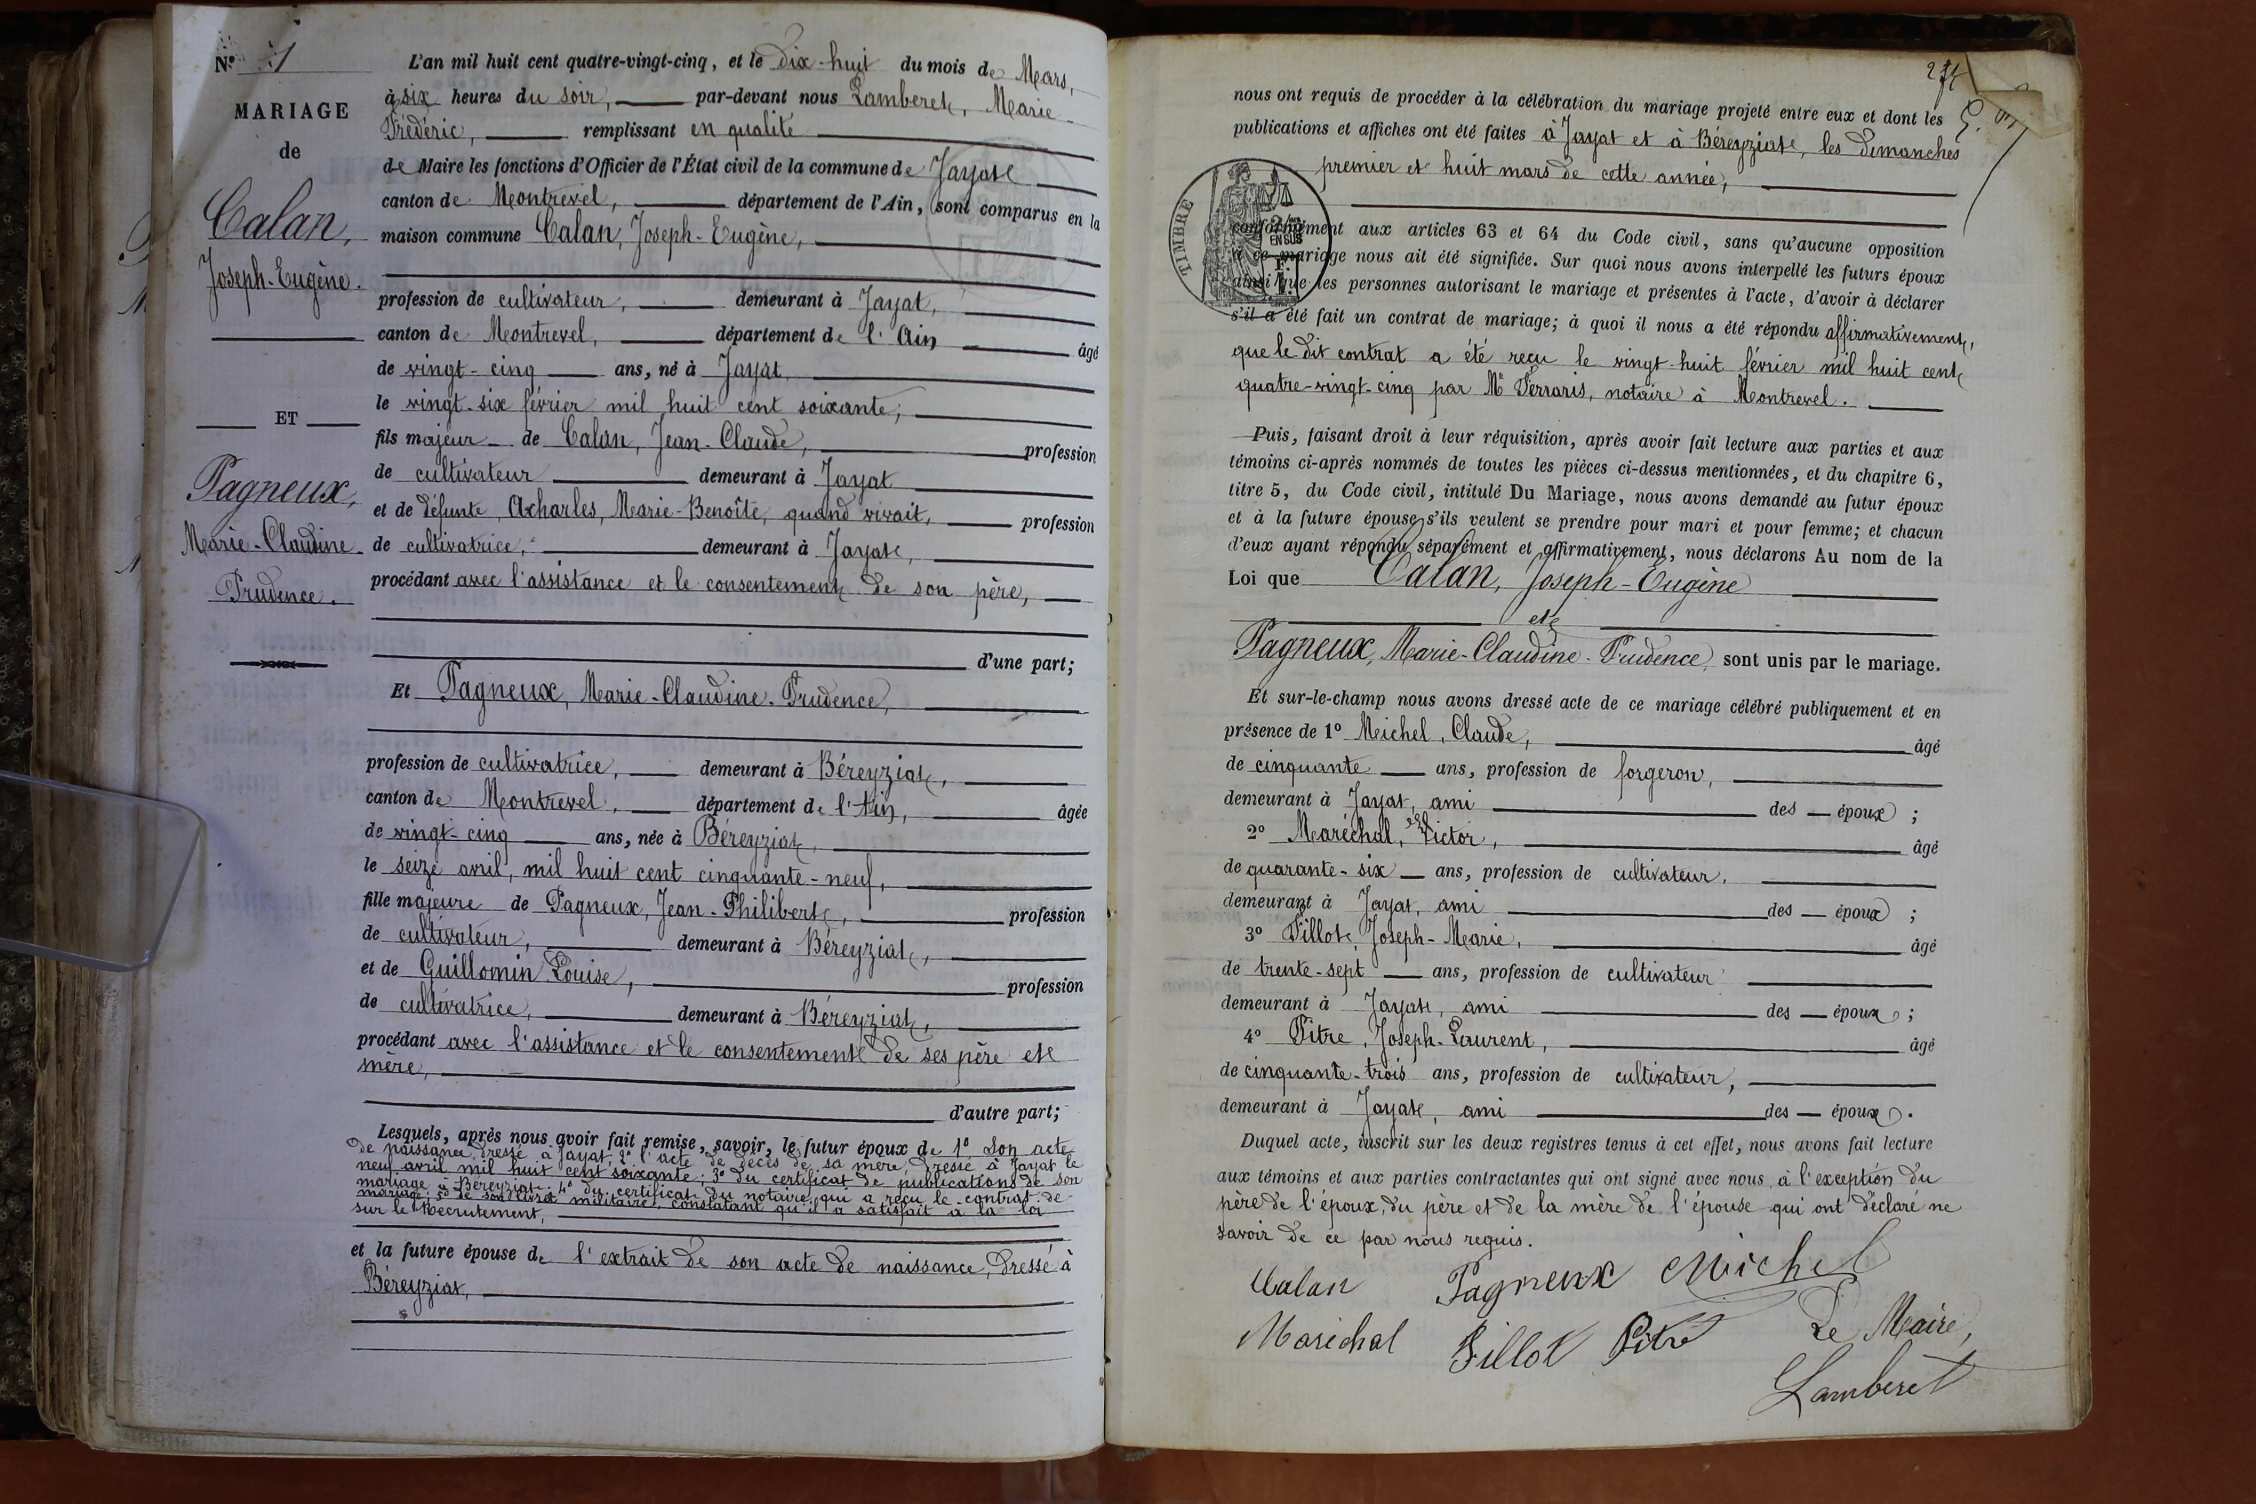 N° 1
MARIAGE
de
Calan,
Joseph-Eugène.
ET
Pagneux,
Marie-Claudine
Prudence.
L'an mil huit cent quatre-vingt-cinq, et le dix-huit du mois de Mars,
à six heures du soir, par-devant nous Lamberet, Marie-
Frédéric, remplissant en qualité
de Maire les fonctions d'Officier de l'État civil de la commune de Jayat
canton de Montrevel, département de l'Ain, sont comparus en la
maison commune Calan, Joseph-Eugène,
profession de cultivateur, demeurant à Jayat,
canton de Montrevel, département de l'Ain âgé
de vingt-cinq ans, né à Jayat
le vingt-six février mil huit cent soixante,
fils majeur de Calan, Jean-Claude, profession
de cultivateur demeurant à Jayat
et de défunte Acharles, Marie-Benoîte, quand vivait, profession
de cultivatrice, demeurant à Jayat,
procédant avec l'assistance et le consentement de son père,
d'une part;
Et Pagneux, Marie-Claudine-Prudence,
profession de cultivatrice, demeurant à Béreyziat,
canton de Montrevel, département de l'Ain, âgée
de vingt-cinq ans, née à Béreyziat,
le seize avril, mil huit cent cinquante-neuf,
fille majeure de Pagneux, Jean-Philibert, profession
de cultivateur, demeurant à Béreyziat,
et de Guillomin Louise, profession
de cultivatrice, demeurant à Béreyziat,
procédant avec l'assistance et le consentement de ses père et
mère,
d'autre part;
Lesquels, après nous avoir fait remise, savoir, le futur époux de 1° Son acte
de naissance dressé à Jayat, 2° l'acte de décès de sa mère, dressé à Jayat le
neuf avril mil huit cent soixante; 3° du certificat de publications de son
mariage à Béreyziat; 4° du certificat du notaire qui a reçu le contrat de
mariage; 5° de son livret militaire, constatant qu'il a satisfait à la loi
sur le Recrutement,
et la future épouse de l'extrait de son acte de naissance, dressé à
Béreyziat,
nous ont requis de procéder à la célébration du mariage projeté entre eux et dont les
publications et affiches ont été faites à Jayat et à Béreyziat, les dimanches
premier et huit mars de cette année,
TIMBRE
2/10
EN SUS
conformément aux articles 63 et 64 du Code civil, sans qu'aucune opposition
à ce mariage nous ait été signifiée. Sur quoi nous avons interpellé les futurs époux
ainsi que les personnes autorisant le mariage et présentes à l'acte, d'avoir à déclarer
s'il a été fait un contrat de mariage; à quoi il nous a été répondu affirmativement,
que le dit contrat a été reçu le vingt-huit février mil huit cent
quatre-vingt-cinq par Me Ferraris, notaire à Montrevel.
Puis, faisant droit à leur réquisition, après avoir fait lecture aux parties et aux
témoins ci-après nommés de toutes les pièces ci-dessus mentionnées, et du chapitre 6,
titre 5, du Code civil, intitulé Du Mariage, nous avons demandé au futur époux
et à la future épouse s'ils veulent se prendre pour mari et pour femme; et chacun
d'eux ayant répondu séparément et affirmativement, nous déclarons Au nom de la
Loi que Calan, Joseph-Eugène
et
Pagneux, Marie-Claudine-Prudence, sont unis par le mariage.
Et sur-le-champ nous avons dressé acte de ce mariage célébré publiquement et en
présence de 1° Michel, Claude, âgé
de cinquante ans, profession de forgeron,
demeurant à Jayat, ami des époux;
2° Maréchal, Victor, âgé
de quarante-six ans, profession de cultivateur,
demeurant à Jayat, ami des époux;
3° Fillot, Joseph-Marie, âgé
de trente-sept ans, profession de cultivateur
demeurant à Jayat, ami des époux;
4° Pitre, Joseph-Laurent, âgé
de cinquante-trois ans, profession de cultivateur,
demeurant à Jayat, ami des époux.
Duquel acte, inscrit sur les deux registres tenus à cet effet, nous avons fait lecture
aux témoins et aux parties contractantes qui ont signé avec nous, à l'exception du
père de l'époux, du père et de la mère de l'épouse qui ont déclaré ne
savoir de ce par nous requis.
Calan Pagneux Michel
Maréchal Fillot Pitre Le Maire,
Lamberet